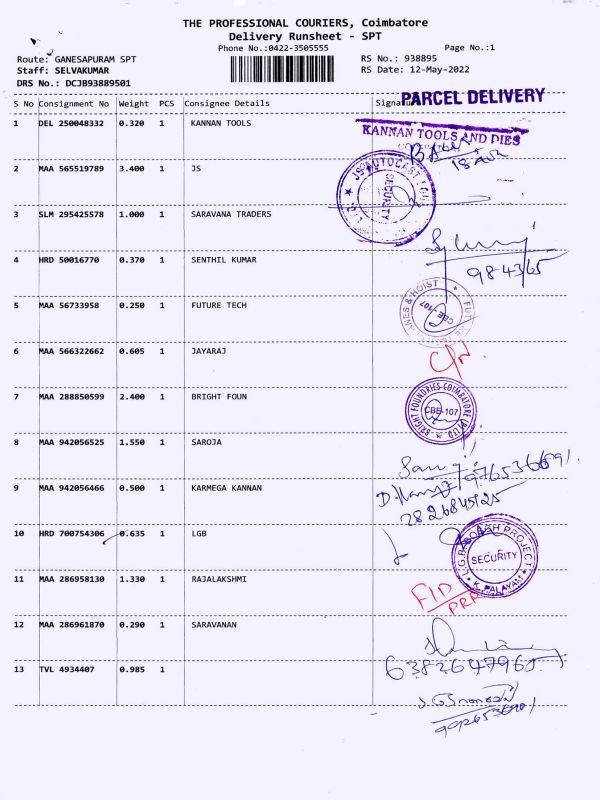 THE PROFESSIONAL COURIERS, Coimbatore
Delivery Runsheet - SPT
Phone No.:0422-3505555
Page No.:1
Route: GANESAPURAM SPT
RS No.: 938895
Staff: SELVAKUMAR
RS Date: 12-May-2022
DRS No.: DCJB93889501
S No Consignment No Weight PCS Consignee Details Signature
PARCEL DELIVERY
1 DEL 250048332 0.320 1 KANNAN TOOLS
KANNAN TOOLS AND DIES
2 MAA 565519789 3.400 1 JS
JS AUTOCAST
SECURITY
3 SLM 295425578 1.000 1 SARAVANA TRADERS
4 HRD 50016770 0.370 1 SENTHIL KUMAR
984365
5 MAA 56733958 0.250 1 FUTURE TECH
CBE-107
6 MAA 566322662 0.605 1 JAYARAJ
7 MAA 288850599 2.400 1 BRIGHT FOUN
BRIGHT FOUNDRIES-COIMBATORE (P) LTD
CBE-107
8 MAA 942056525 1.550 1 SAROJA
9 MAA 942056466 0.500 1 KARMEGA KANNAN
2826845125
10 HRD 700754306 0.635 1 LGB
PROJECT
SECURITY
K. PALAYAM
11 MAA 286958130 1.330 1 RAJALAKSHMI
12 MAA 286961870 0.290 1 SARAVANAN
6382647960
13 TVL 4934407 0.985 1